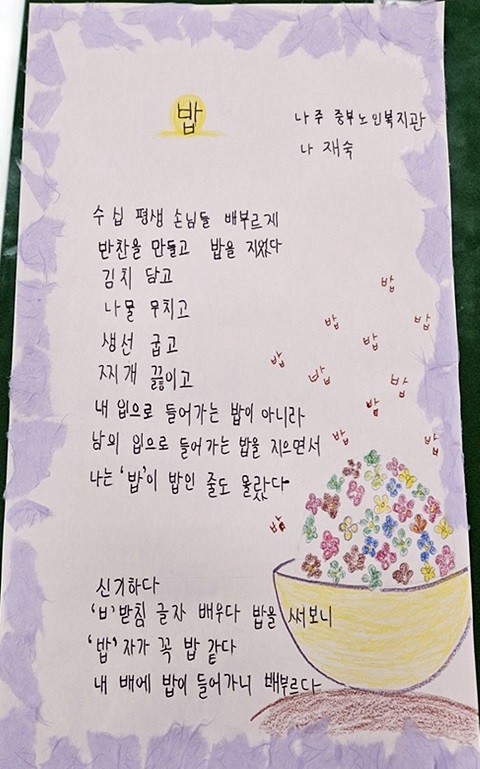 밥
나주 중부노인복지관
나 재숙
수 십 평생 손님들 배부르게
반찬을 만들고 밥을 지었다
김치 담고
나물 무치고
생선 굽고
찌개 끓이고
내 입으로 들어가는 밥이 아니라
남의 입으로 들어가는 밥을 지으면서
나는 '밥'이 밥인 줄도 몰랐다
밥
밥
밥
밥
밥
밥
밥
밥
밥
밥
밥
신기하다
'ㅂ'받침 글자 배우다 밥을 써보니
'밥'자가 꼭 밥 같다
내 배에 밥이 들어가니 배부르다